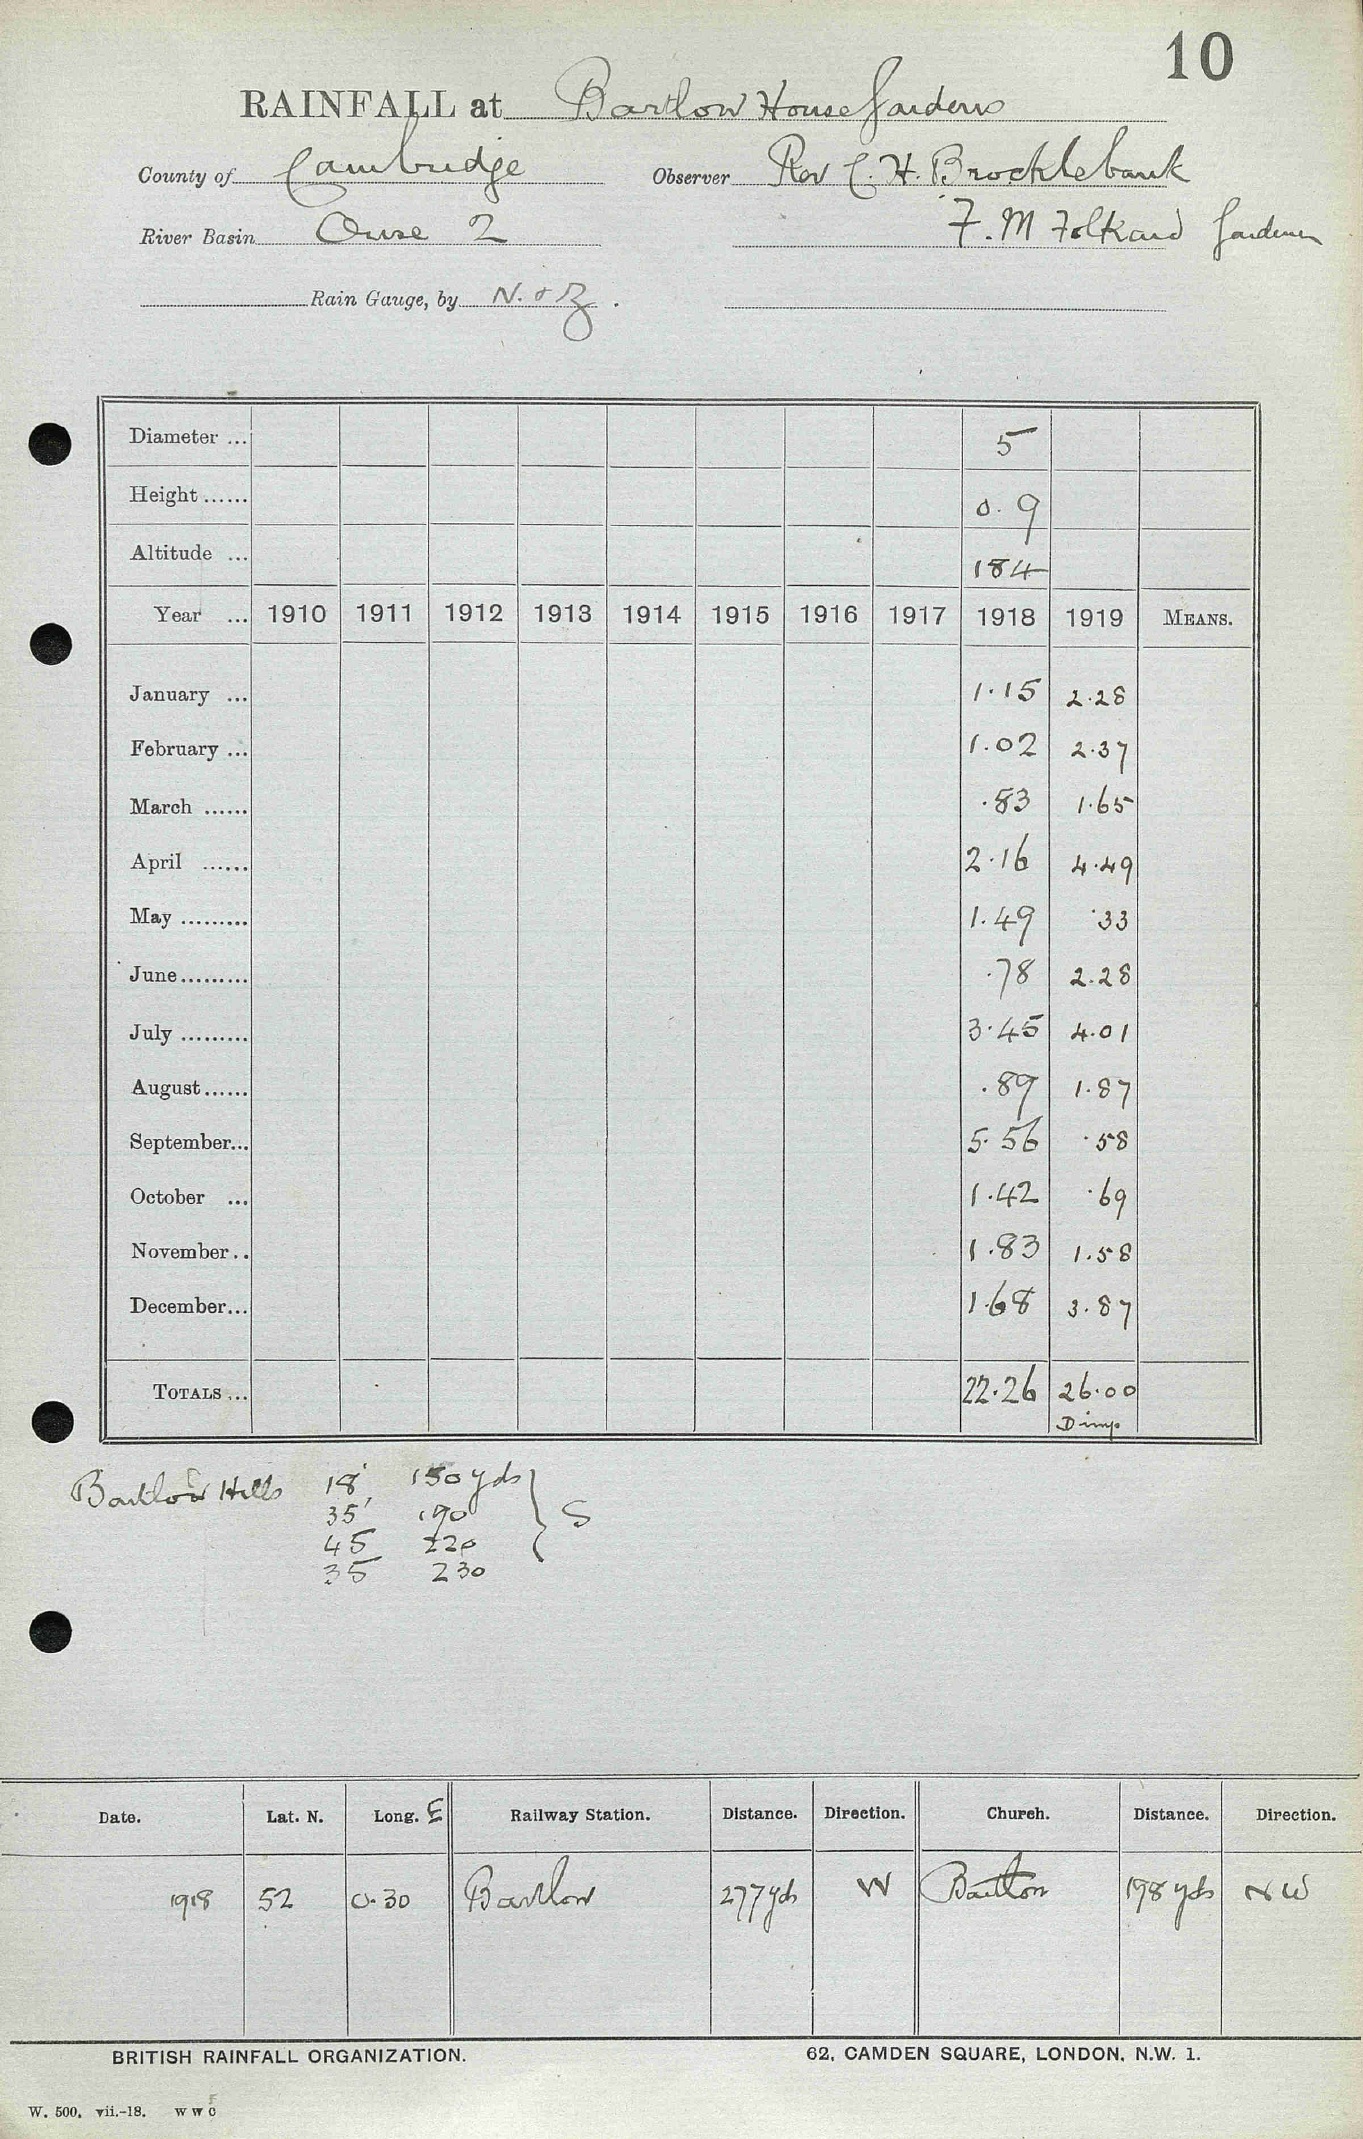 10
RAINFALL at Bartlow House Gardens
County of Cambridge Observer Rev C. H. Brocklebank
River Basin Ouse 2 F. M Folkard Gardener
Rain Gauge, by N. & Z.
Diameter ... 5
Height ...... 0.9
Altitude ... 184
Year ... 1910 1911 1912 1913 1914 1915 1916 1917 1918 1919 MEANS.
January ... 1.15 2.28
February ... 1.02 2.37
March ...... .83 1.65
April ...... 2.16 4.49
May ......... 1.49 .33
June ......... .78 2.28
July ......... 3.45 4.01
August ...... .89 1.87
September... 5.56 .58
October ... 1.42 .69
November .. 1.83 1.58
December... 1.68 3.87
TOTALS ... 22.26 26.00
D imp
Bartlow Hills 18' 150 yds
35' 190 } S
45 220
35 230
Date. Lat. N. Long. E Railway Station. Distance. Direction. Church. Distance. Direction.
1918 52 0.30 Bartlow 277 yds W Bartlow 198 yds NW
BRITISH RAINFALL ORGANIZATION. 62, CAMDEN SQUARE, LONDON, N.W. 1.
W. 500. vii.-18. W W